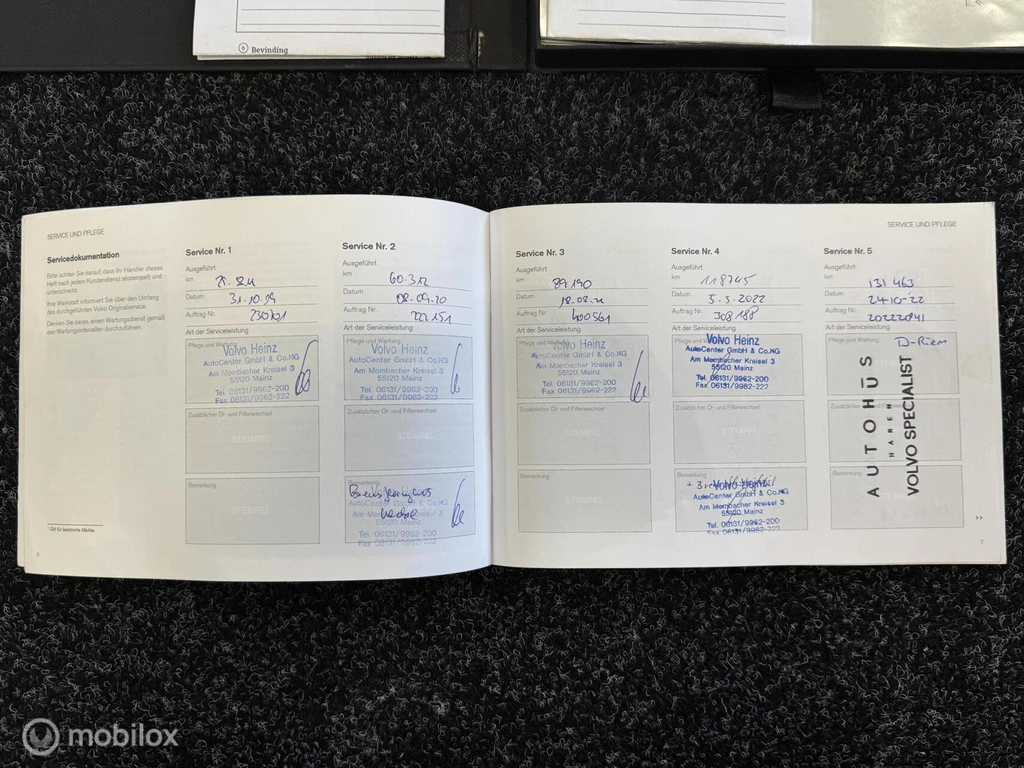 6 Bevinding
SERVICE UND PFLEGE
Servicedokumentation
Bitte achten Sie darauf, dass Ihr Händler dieses
Heft nach jedem Kundendienst abstempelt und
unterschreibt.
Ihre Werkstatt informiert Sie über den Umfang
des durchgeführten Volvo Originalservice.
Denken Sie daran, einen Wartungsdienst gemäß
den Wartungsintervallen durchzuführen.
1 Gilt für bestimmte Märkte.
6
Service Nr. 1
Ausgeführt
km
Datum 31.10.19
Auftrag Nr.
Art der Serviceleistung
Pflege und Wartung
Volvo Heinz
AutoCenter GmbH & Co.KG
Am Mombacher Kreisel 3
55120 Mainz
Tel. 06131/9962-200
Fax 06131/9962-222
Zusätzlicher Öl- und Filterwechsel
STEMPEL
Bemerkung
STEMPEL
Service Nr. 2
Ausgeführt
km 60.312
Datum 02.09.20
Auftrag Nr.
Art der Serviceleistung
Pflege und Wartung
Volvo Heinz
AutoCenter GmbH & Co.KG
Am Mombacher Kreisel 3
55120 Mainz
Tel. 06131/9962-200
Fax 06131/9962-222
Zusätzlicher Öl- und Filterwechsel
STEMPEL
Bemerkung
AutoCenter GmbH & Co.KG
Am Mombacher Kreisel 3
55120 Mainz
Tel. 06131/9962-200
Fax 06131/9962-222
SERVICE UND PFLEGE
Service Nr. 3
Ausgeführt
km 89.190
Datum 18.08.21
Auftrag Nr. 400561
Art der Serviceleistung
Pflege und Wartung
Volvo Heinz
AutoCenter GmbH & Co.KG
Am Mombacher Kreisel 3
55120 Mainz
Tel. 06131/9962-200
Fax 06131/9962-222
Zusätzlicher Öl- und Filterwechsel
STEMPEL
Bemerkung
STEMPEL
Service Nr. 4
Ausgeführt
km 118745
Datum 5.5.2022
Auftrag Nr. 308188
Art der Serviceleistung
Pflege und Wartung
Volvo Heinz
AutoCenter GmbH & Co.KG
Am Mombacher Kreisel 3
55120 Mainz
Tel. 06131/9962-200
Fax 06131/9962-222
Zusätzlicher Öl- und Filterwechsel
STEMPEL
Bemerkung
Volvo Heinz
AutoCenter GmbH & Co.KG
Am Mombacher Kreisel 3
55120 Mainz
Tel. 06131/9962-200
Fax 06131/9962-222
Service Nr. 5
Ausgeführt
km 131 463
Datum 24-10-22
Auftrag Nr. 20222841
Art der Serviceleistung
Pflege und Wartung
D-Riem
AUTOHŪS
HAREN
VOLVO SPECIALIST
Zusätzlicher Öl- und Filterwechsel
Bemerkung
STEMPEL
7
mobilox